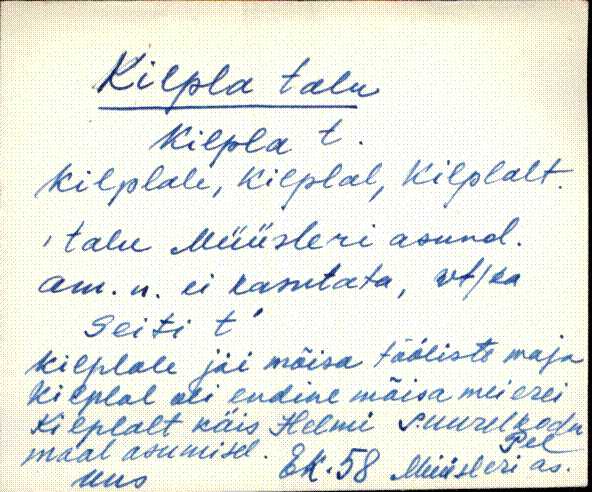 Kilpla talu
Kilpla t.
Kilplale, Kilplal, Kilplalt.
talu Müüsleri asund.
am. n. ei kasutata, vt/ka
Seiti t'
Kilplale jäi mõisa tööliste maja
Kilplal oli endine mõisa meierei
Kilplalt käis Helmi suurel kodu
maal asumisel. Pee
Uus EK. 58 Müüsleri as.